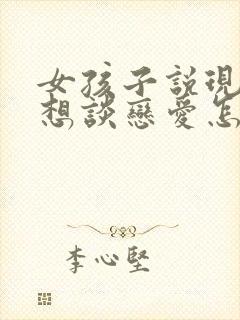 女孩子説現
想談戀愛怎
李心堅